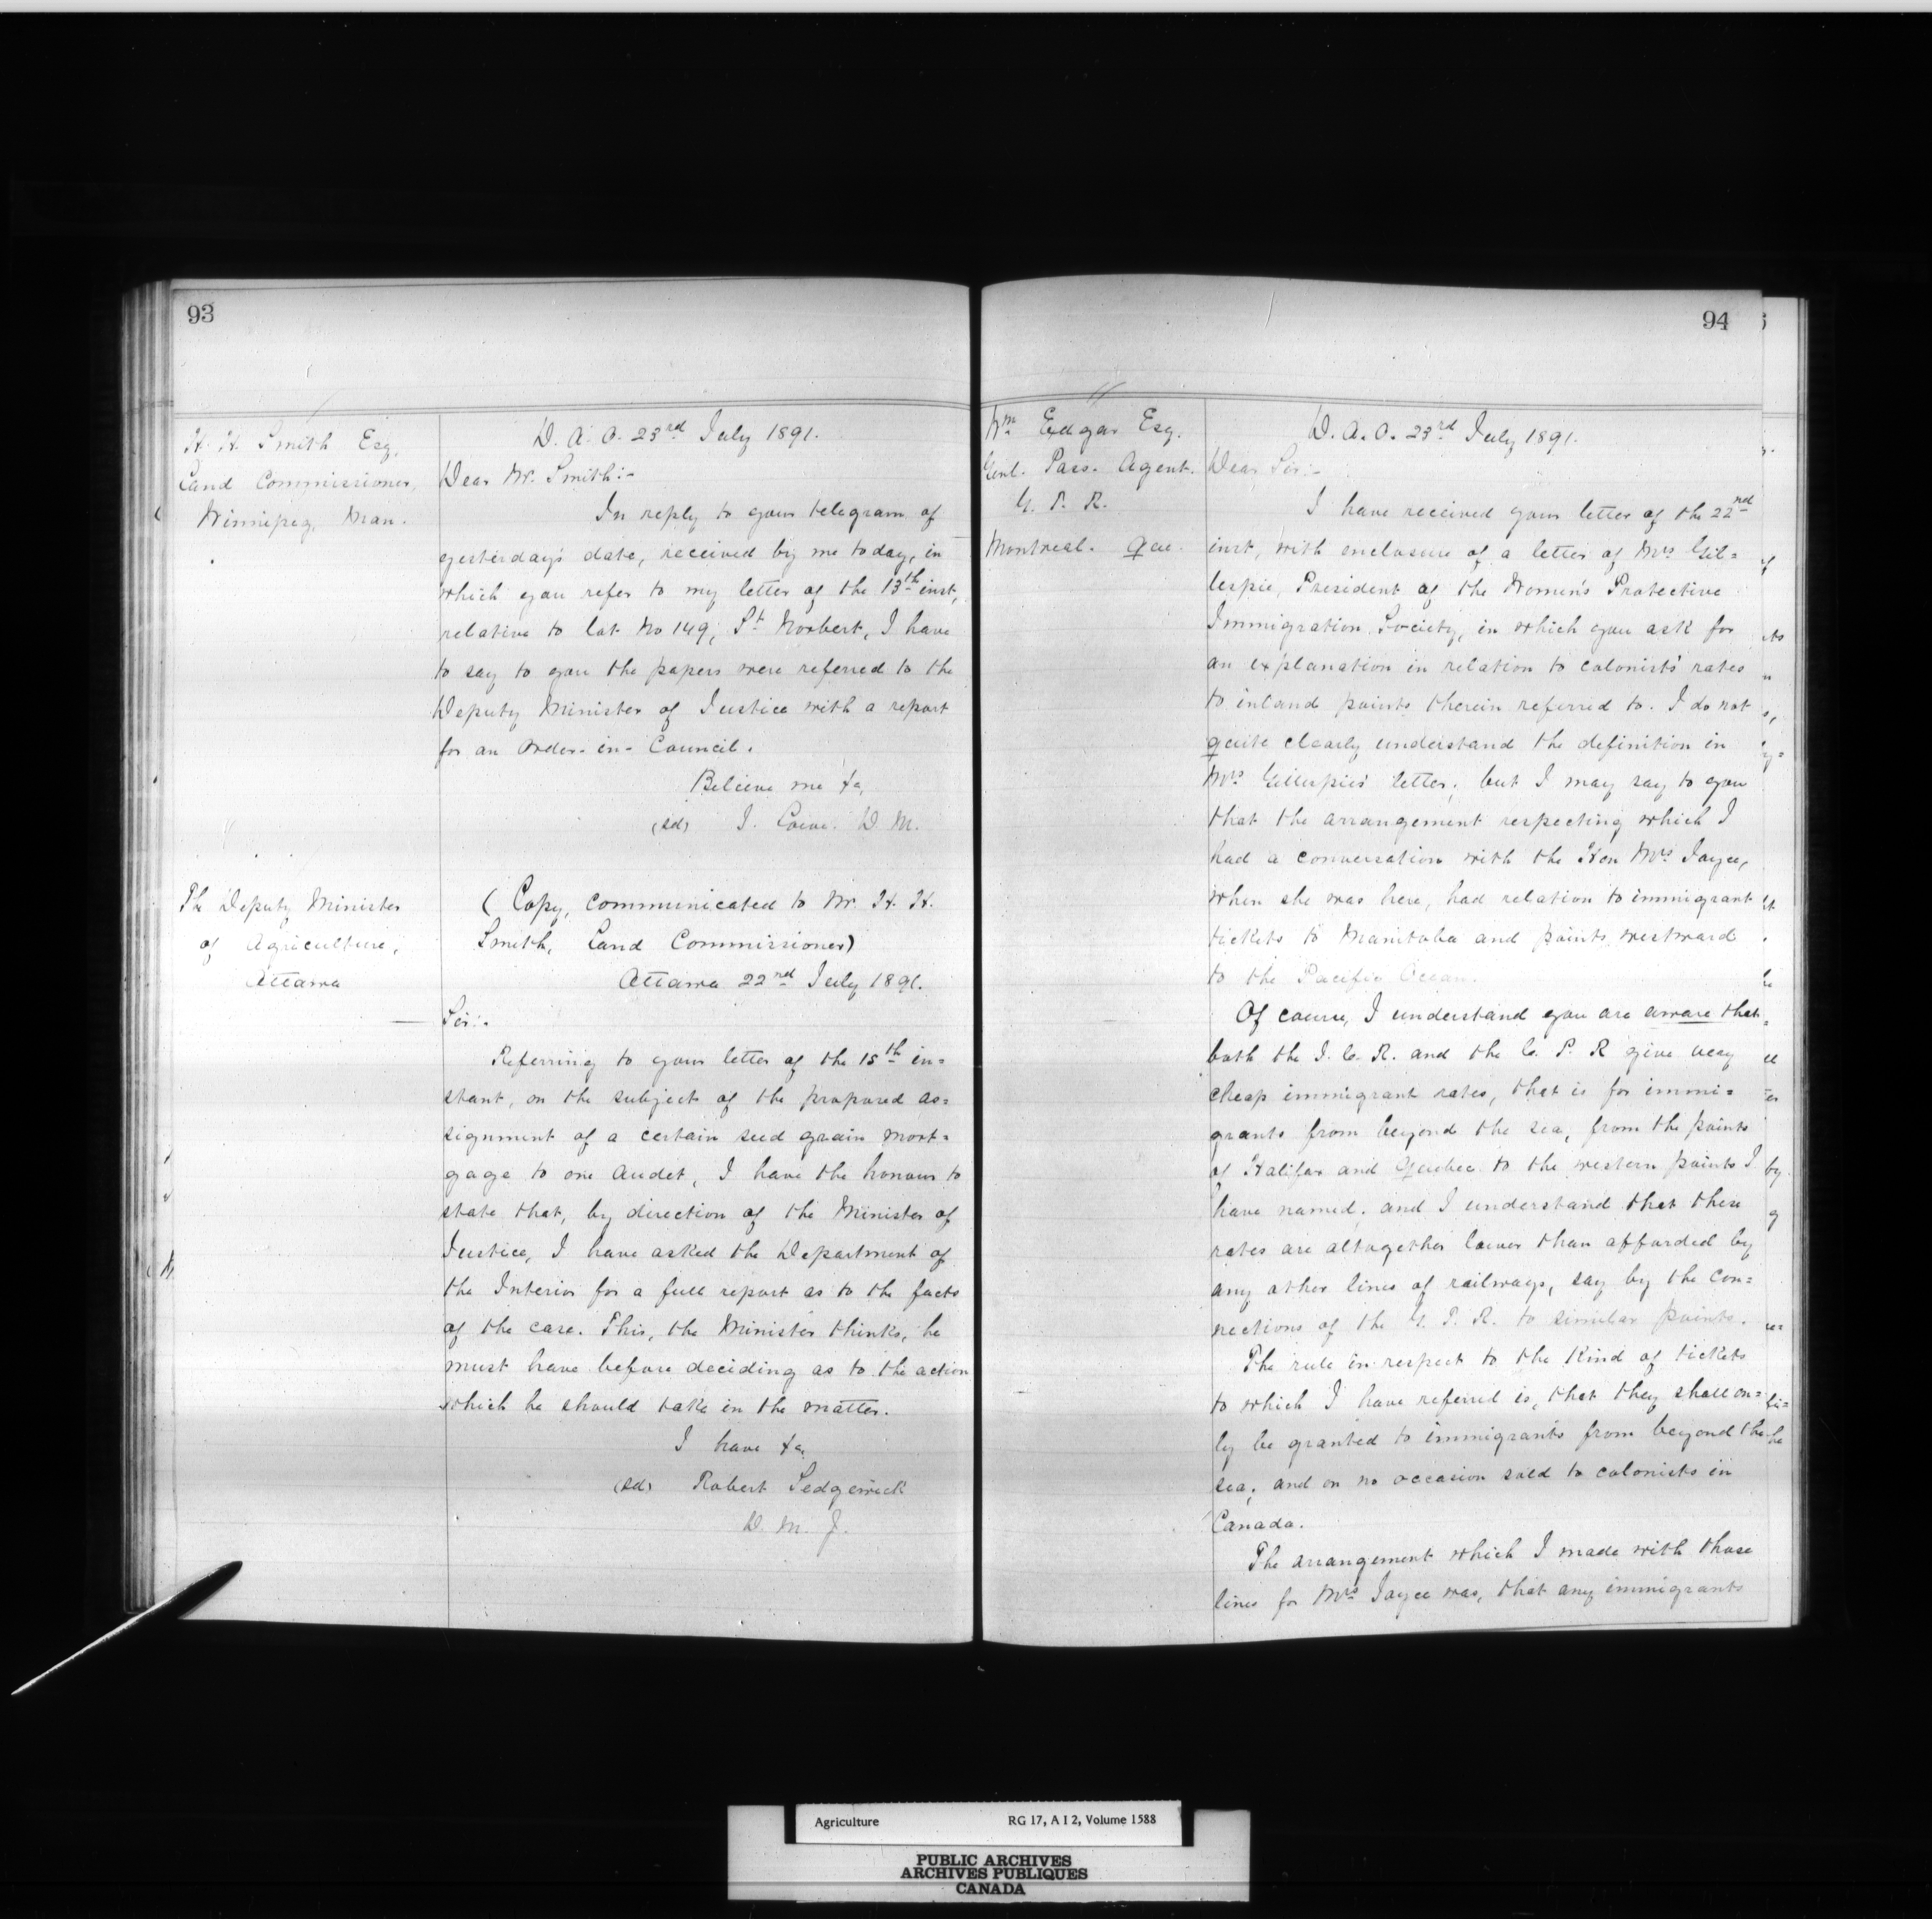 93
H. H. Smith Esq.
Land Commissioner,
Winnipeg, Man.
D. A. O. 23rd July 1891.
Dear Mr. Smith:-
In reply to your telegram of
yesterday's date, received by me today, in
which you refer to my letter of the 13th inst,
relative to lot No 149, St Norbert, I have
to say to you the papers were referred to the
Deputy Minister of Justice with a report
for an Order-in-Council.
Believe me &c,
(sd) J. Lowe. D. M.
The Deputy Minister
of Agriculture,
Ottawa
(Copy, communicated to Mr. H. H.
Smith, Land Commissioner)
Ottawa 22nd July 1891.
Sir:-
Referring to your letter of the 15th in=
stant, on the subject of the proposed as=
signment of a certain seed grain mort=
gage to one Audet, I have the honour to
state that, by direction of the Minister of
Justice, I have asked the Department of
the Interior for a full report as to the facts
of the case. This, the Minister thinks, he
must have before deciding as to the action
which he should take in the matter.
I have &c,
(sd) Robert Sedgewick
D. M. J.
94
Wm Edgar Esq.
Genl. Pass. Agent.
G. T. R.
Montreal. Que.
D. A. O. 23rd July 1891.
Dear Sir:-
I have received your letter of the 22nd
inst, with enclosure of a letter of Mrs Gil=
lespie, President of the Women's Protective
Immigration Society, in which you ask for
an explanation in relation to colonists' rates
to inland points therein referred to. I do not
quite clearly understand the definition in
Mrs Gillespie's letter; but I may say to you
that the arrangement respecting which I
had a conversation with the Hon Mrs Joyce,
when she was here, had relation to immigrant
tickets to Manitoba and points westward
to the Pacific Ocean.
Of course, I understand you are aware that
both the I. C. R. and the C. P. R give very
cheap immigrant rates, that is for immi=
grants from beyond the sea, from the points
of Halifax and Quebec to the western points I
have named; and I understand that these
rates are altogether lower than afforded by
any other lines of railways, say by the con=
nections of the G. T. R. to similar points.
The rule in respect to the kind of tickets
to which I have referred is, that they shall on=
ly be granted to immigrants from beyond the
sea; and on no occasion sold to colonists in
Canada.
The arrangement which I made with those
lines for Mrs Joyce was, that any immigrants
Agriculture RG 17, A I 2, Volume 1588
PUBLIC ARCHIVES
ARCHIVES PUBLIQUES
CANADA